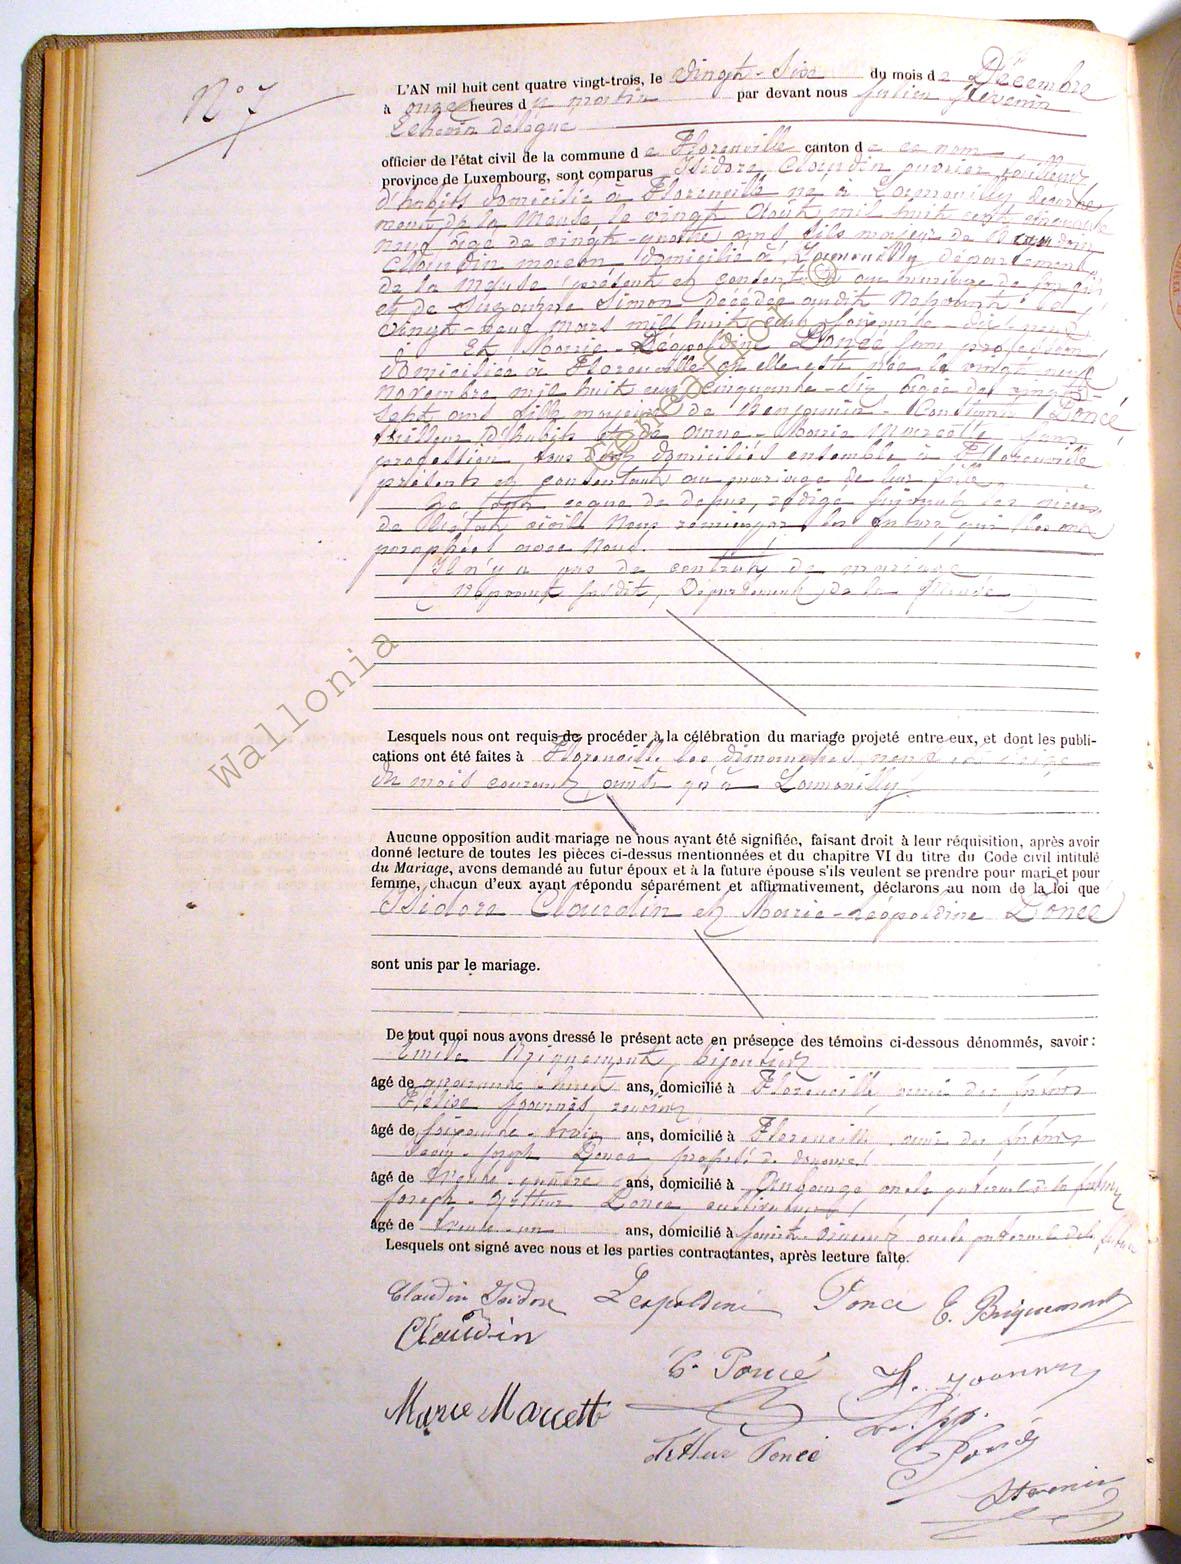 N° 7
L'AN mil huit cent quatre vingt-trois, le vingt-six du mois de Décembre
à onze heures du matin par devant nous Julien
Echevin délégué
officier de l'état civil de la commune de Florenville canton de ce nom
province de Luxembourg, sont comparus Isidore Claudin ouvrier
d'habits domicilié à Florenville né à Loumouilly, départe
ment de la Meuse, le vingt Août mil huit cent cinquante
neuf âgé de vingt-quatre ans, fils majeur de
Claudin maçon domicilié à Loumouilly, département
de la Meuse présent et consentant au mariage de son fils
et de Suzanne Simon décédée audit le
vingt-neuf Mars mil huit cent soixante-dix neuf
Et Marie-Léopoldine Poncé sans profession
domiciliée à Florenville où elle est née le vingt neuf
novembre mil huit cent cinquante-six âgée de vingt-
sept ans fille majeure de Benjamin-Constant Poncé
tailleur d'habits et de Anne-Marie Marcett sans
profession, tous deux domiciliés ensemble à Florenville
présents et consentant au mariage de leur fille.
De tout ce que de dessus, rédigé
de l'état civil Nous les futurs qui les ont
paraphées avec Nous.
Il n'y a pas de contrat de mariage
Département de la Meuse
Lesquels nous ont requis de procéder à la célébration du mariage projeté entre eux, et dont les publi-
cations ont été faites à Florenville les dimanches neuf et seize
du mois courant, ainsi qu'à Loumouilly.
Aucune opposition audit mariage ne nous ayant été signifiée, faisant droit à leur réquisition, après avoir
donné lecture de toutes les pièces ci-dessus mentionnées et du chapitre VI du titre du Code civil intitulé
du Mariage, avons demandé au futur époux et à la future épouse s'ils veulent se prendre pour mari et pour
femme, chacun d'eux ayant répondu séparément et affirmativement, déclarons au nom de la loi que
Isidore Claudin et Marie-Léopoldine Poncé
sont unis par le mariage.
De tout quoi nous avons dressé le présent acte en présence des témoins ci-dessous dénommés, savoir :
Emile Briquemont, bijoutier
âgé de quarante-huit ans, domicilié à Florenville ami des futurs
âgé de soixante-trois ans, domicilié à Florenville ami des futurs
Joseph Poncé préposé de douanes
âgé de trente-quatre ans, domicilié à Aubange oncle paternel de la future
Joseph-Arthur Poncé
âgé de trente-un ans, domicilié à Saint-Vincent oncle paternel de la future
Lesquels ont signé avec nous et les parties contractantes, après lecture faite.
Claudin Isidore Léopoldine Poncé E. Briquemont
Claudin
C. Poncé
Marie Marcett
Arthur Poncé
Poncé
Wallonia
Geneanor
©